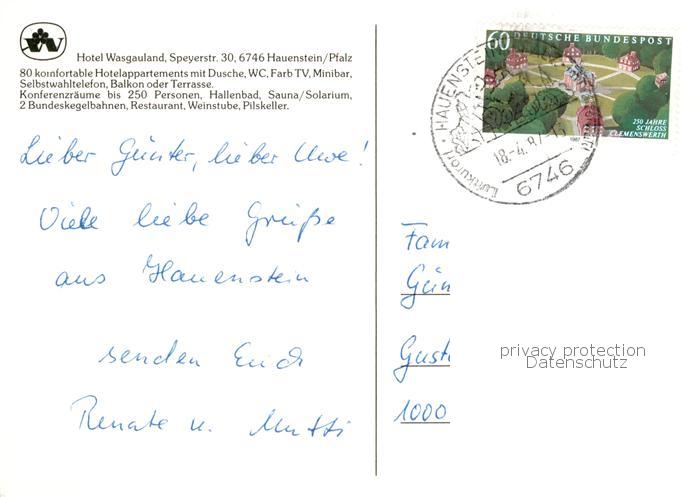 Hotel Wasgauland, Speyerstr. 30, 6746 Hauenstein/Pfalz
80 komfortable Hotelappartements mit Dusche, WC, Farb TV, Minibar,
Selbstwahltelefon, Balkon oder Terrasse.
Konferenzräume bis 250 Personen, Hallenbad, Sauna/Solarium,
2 Bundeskegelbahnen, Restaurant, Weinstube, Pilskeller.
Lieber Günter, lieber Uwe!
Viele liebe Grüße
aus Hauenstein
senden Euch
Renate u. Mutti
60 DEUTSCHE BUNDESPOST
250 JAHRE
SCHLOSS
CLEMENSWERTH
HAUENSTEIN
Luftkurort
18.-4.87
6746
Fam
Gün
Gust
1000
privacy protection
Datenschutz